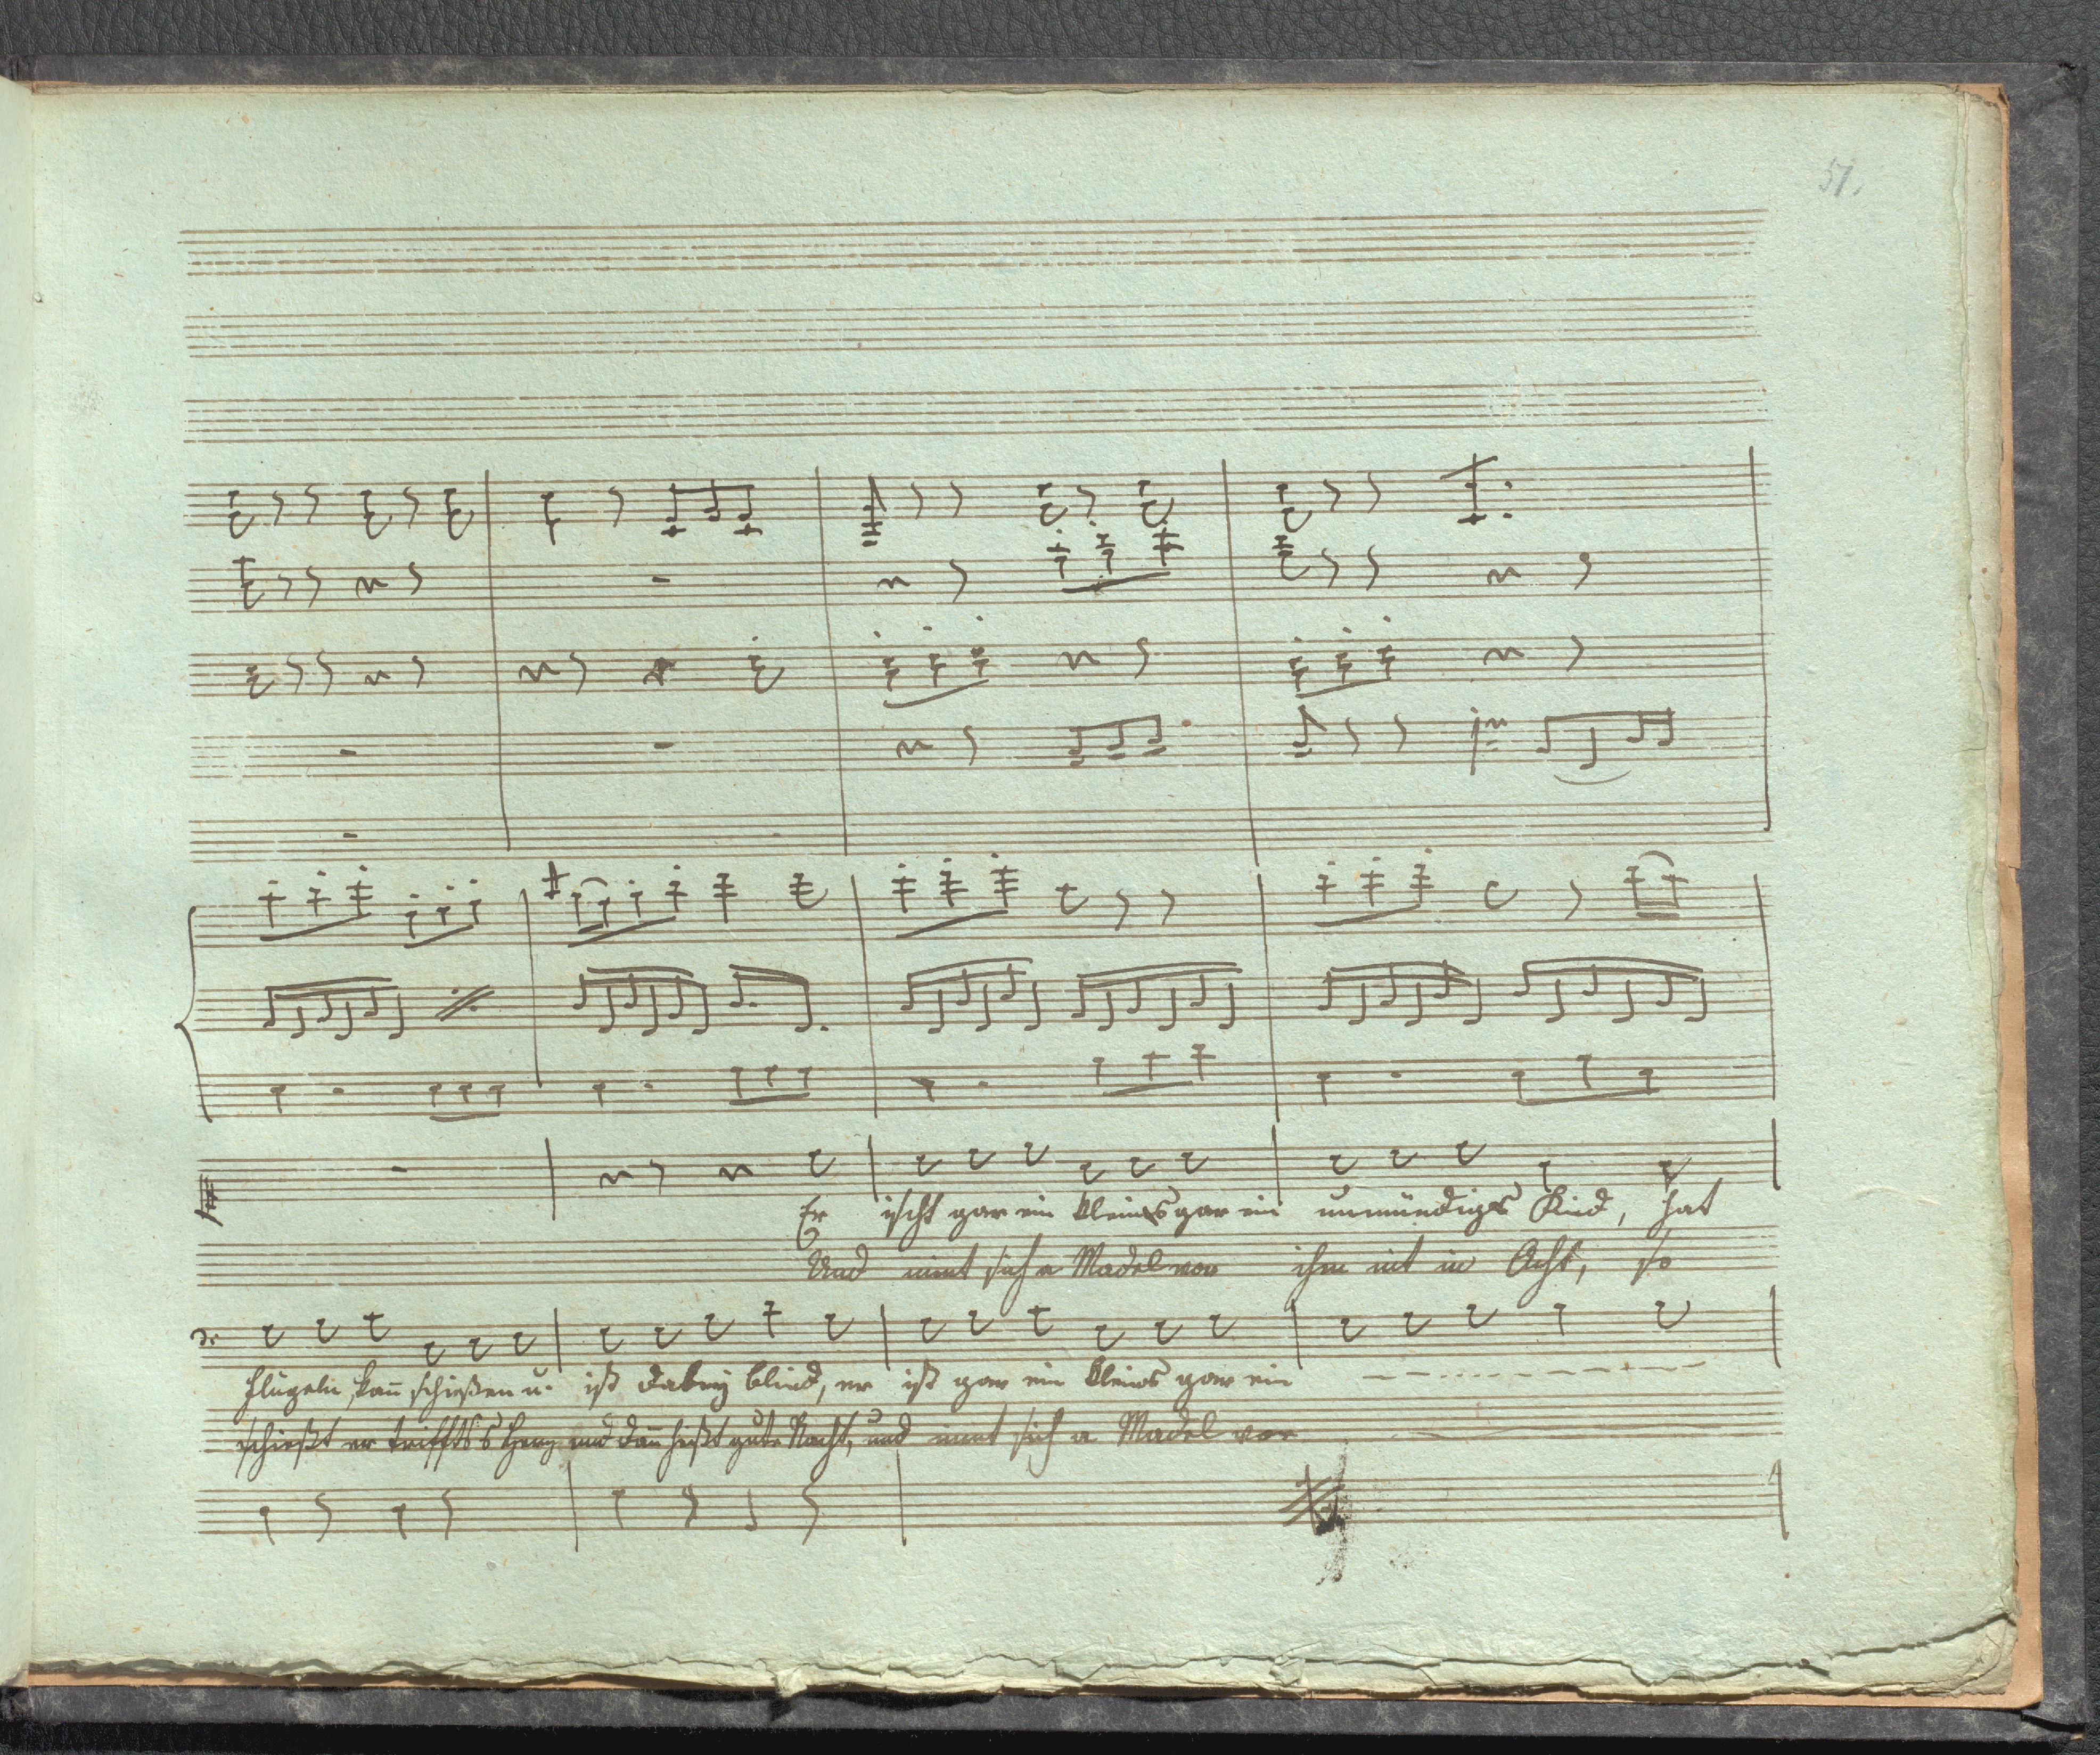 51.
Er ischt gar ein kleines gar ein unmündigs Kind, hat
Und nimt sich a Madel vor ihm nit in Acht, so
flügeln, kañ schießen u. ist dabey blind, er ist gar ein kleins gar ein
schießt er triffts s Herz und dañ heißt gute Nacht, und nimt sich a Madel vor